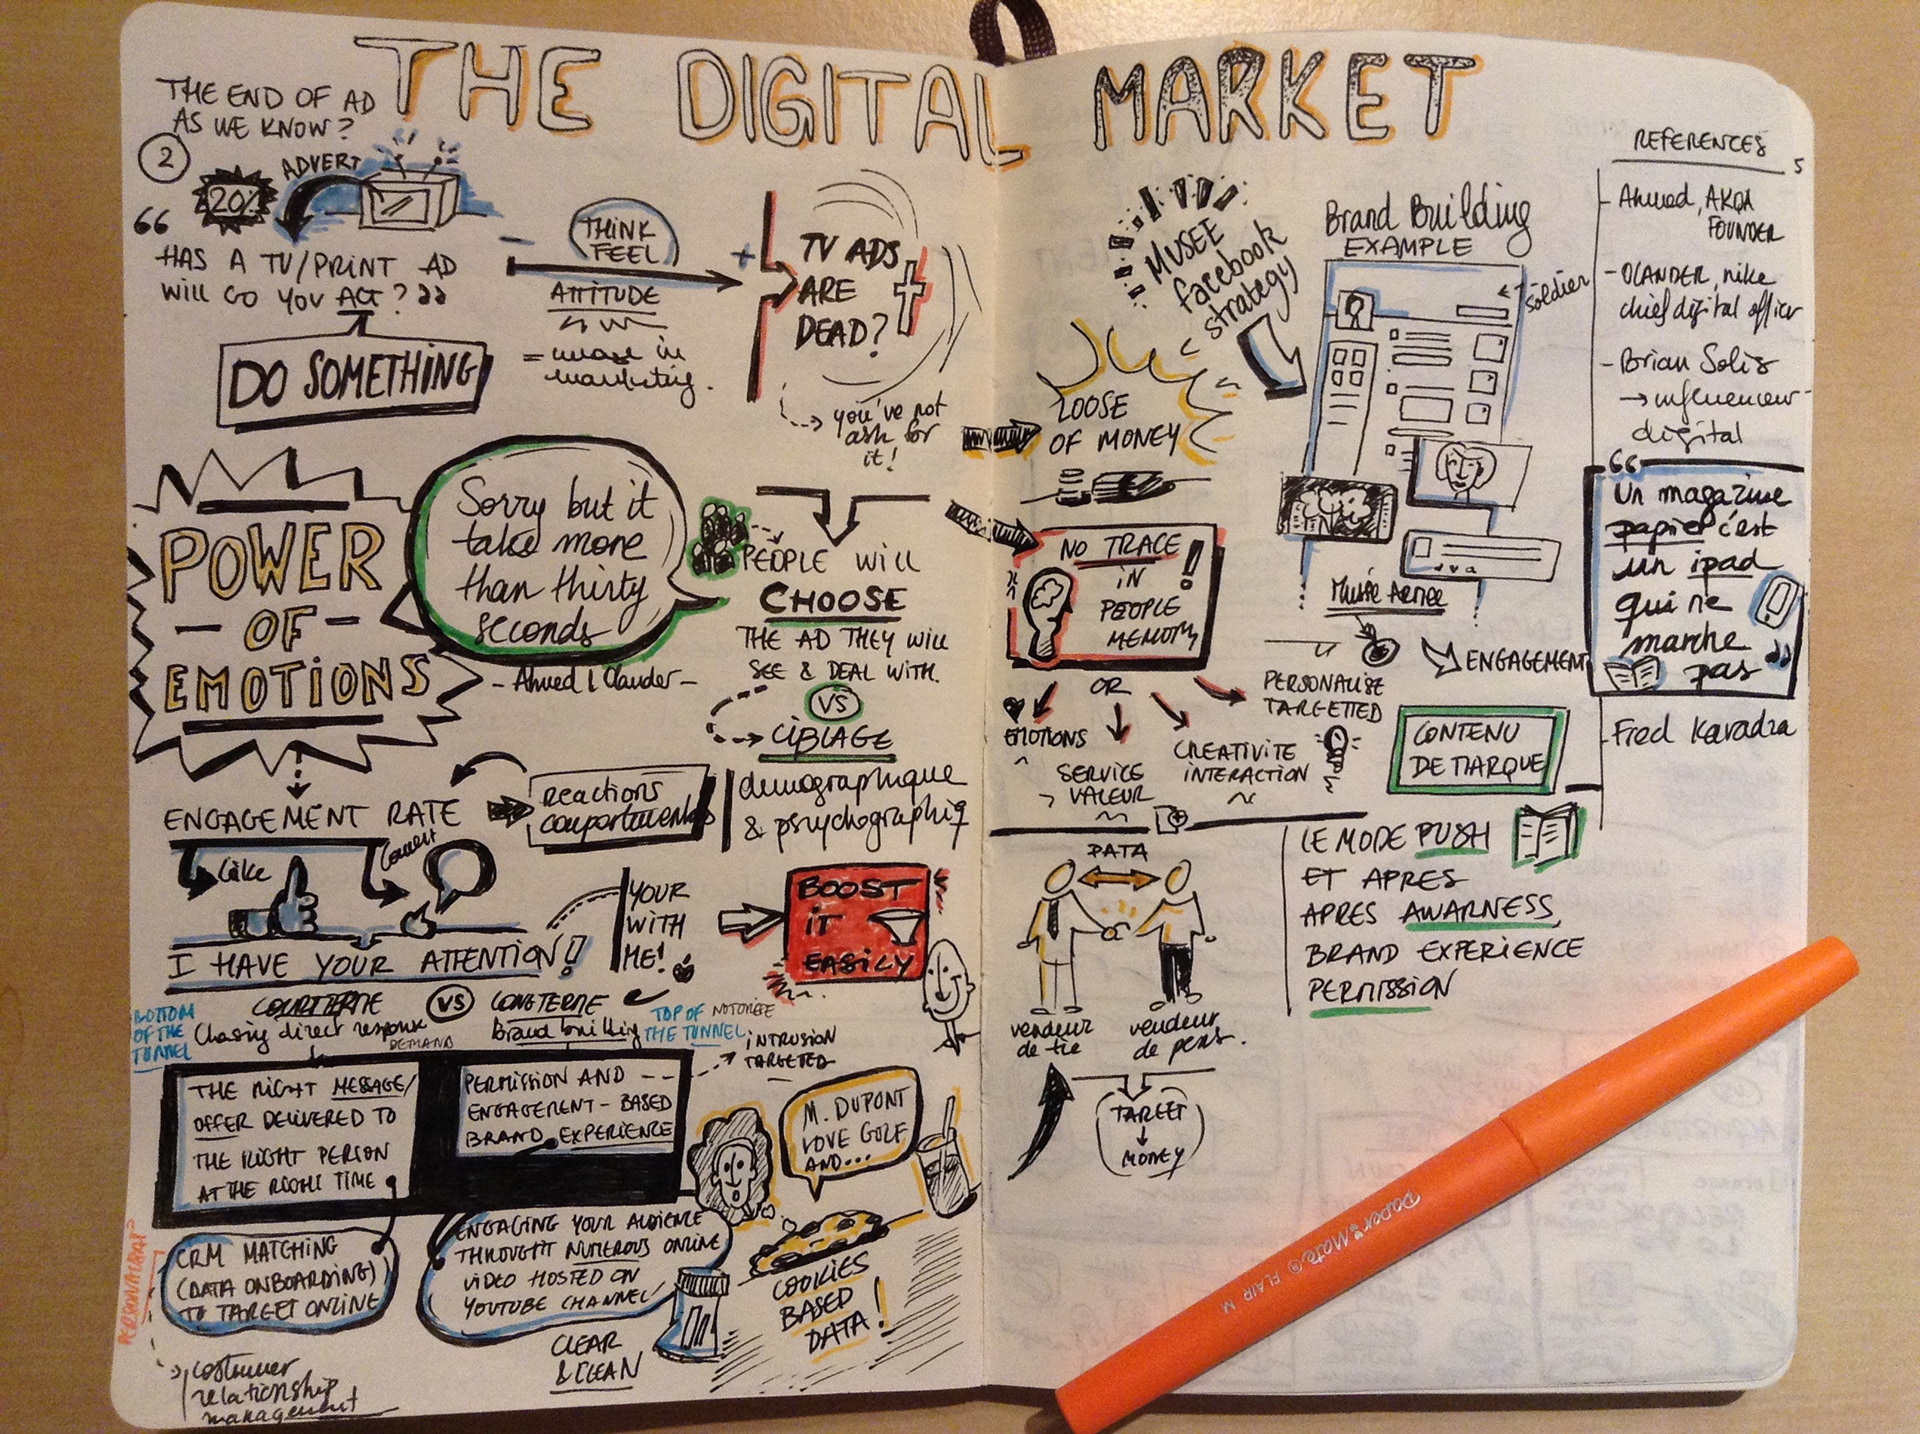 THE DIGITAL MARKET
THE END OF AD
AS WE KNOW?
2
ADVERT
20%
“
HAS A TV/PRINT AD
WILL GO YOU ACT? ”
DO SOMETHING
-
THINK
FEEL
+
ATTITUDE
=
in
marketing.
TV ADS
ARE
DEAD?
you've not
ask for
it!
POWER
- OF -
EMOTIONS
Sorry but it
take more
than thirty
seconds
- Ahmed | Olander -
PEOPLE WILL
CHOOSE
THE AD THEY WILL
SEE & DEAL WITH.
VS
CIBLAGE
demographique
& psychographiq
ENGAGEMENT RATE
reactions
comportementales
Like
Coment
I HAVE YOUR ATTENTION!
YOUR
WITH
ME!
BOOST
iT
EASILY
COURTTERME VS LONGTERME
BOTTOM
OF THE
TUNNEL
Chasing direct response
DEMAND
Brand building
TOP OF NOTORIETE
THE TUNNEL
INTRUSION
TARGETED
THE RIGHT MESSAGE/
OFFER DELIVERED TO
THE RIGHT PERSON
AT THE RIGHT TIME
PERMISSION AND --
ENGAGEMENT-BASED
BRAND EXPERIENCE
M. DUPONT
LOVE GOLF
AND...
CRM MATCHING
(DATA ONBOARDING)
TO TARGET ONLINE
ENGAGING YOUR AUDIENCE
THROUGHT NUMEROUS ONLINE
VIDEO HOSTED ON
YOUTUBE CHANNEL
CLEAR
& CLEAN
COOKIES
BASED
DATA!
costumer
relationship
management
MUSEE
facebook
strategy
Brand Building
EXAMPLE
soldier
LOOSE
OF MONEY
NO TRACE
iN
PEOPLE
MEMORY
!
Musée Armée
ENGAGEMENT
OR
EMOTIONS
SERVICE
VALEUR
CREATIVITE
INTERACTION
PERSONALISE
TARGETTED
CONTENU
DE MARQUE
DATA
vendeur
de tie
vendeur
de pens.
TARGET
MONEY
LE MODE PUSH
ET APRES
APRES AWARNESS,
BRAND EXPERIENCE
PERMISSION
REFERENCES
- Ahmed, AKQA
FOUNDER
- OLANDER, nike
chief digital officer
- Brian Solis
→ influenceur
digital
“
Un magazine
papier c'est
un ipad
qui ne
marche
pas ”
- Fred Kavadza
Paper Mate® FLAIR M